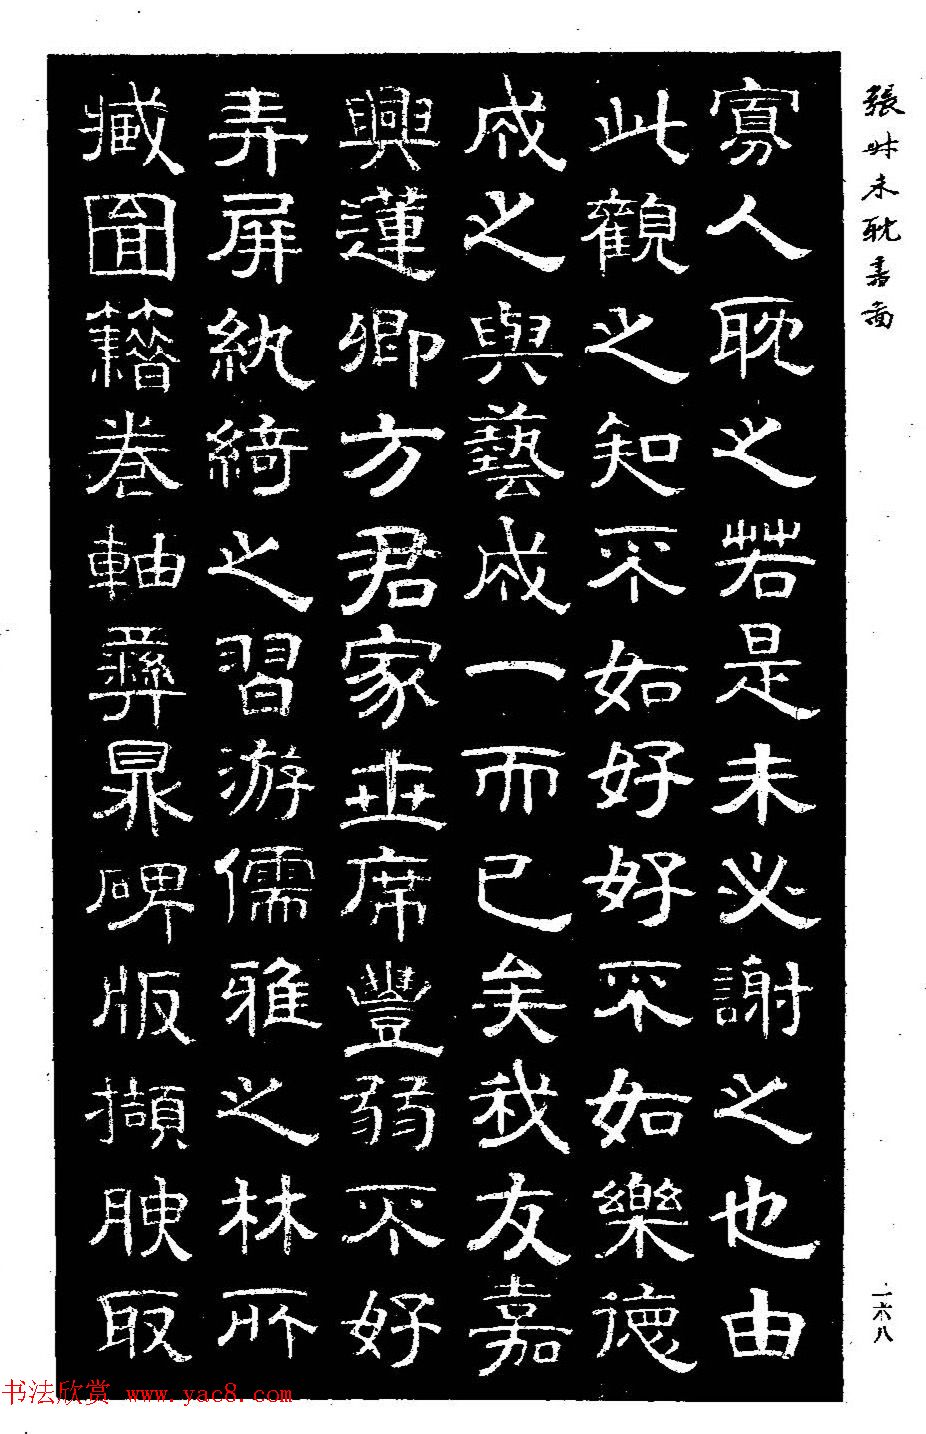 張叔未耽書圖
寡人耽之若是未必謝之也由
此觀之知不如好好不如樂德
成之與藝成一而已矣我友嘉
興蓮卿方君家世席豐弱不好
弄屏紈綺之習游儒雅之林所
臧圖籍卷軸彝鼎碑版擷腴取
一六八
书法欣赏 www.yac8.com